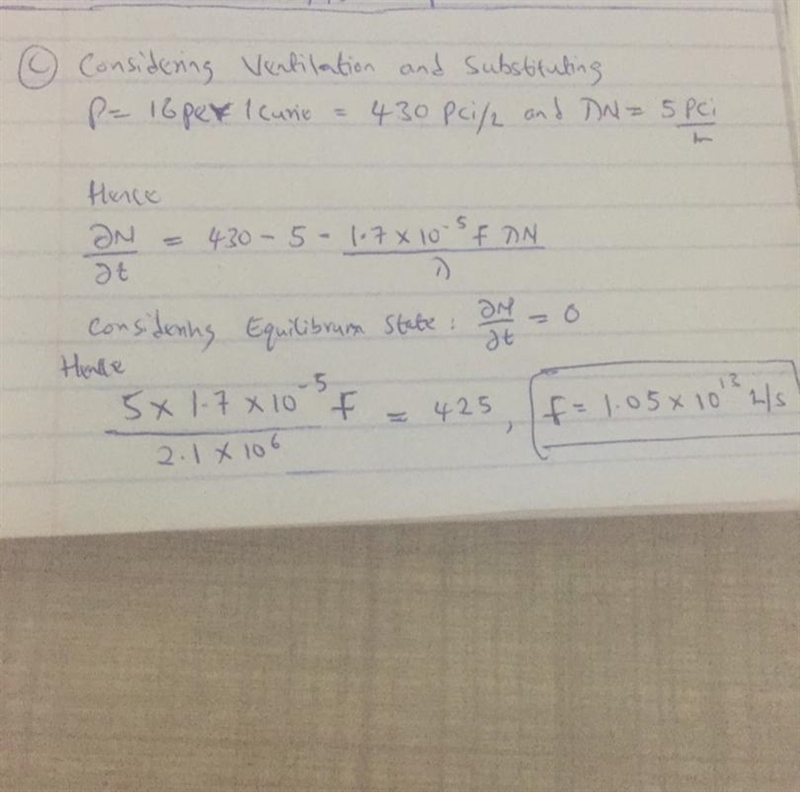 (C) Considering Ventilation and Substituting
P= 16 per 1 Curie = 430 PCi/L and λN = 5 PCi/L
Hence
∂N/∂t = 430 - 5 - 1.7 × 10^-5 f λN / λ
Considering Equilibrum State : ∂N/∂t = 0
Hence
5 × 1.7 × 10^-5 f / 2.1 × 10^6 = 425 , f = 1.05 × 10^13 L/s